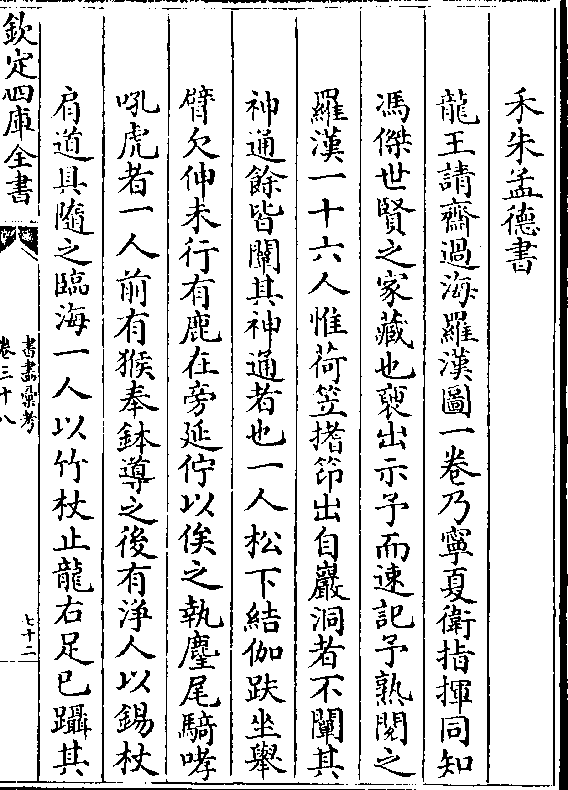 禾朱孟德書
龍王請齋過海羅漢圖一卷乃寧夏衛指揮同知
馮傑世賢之家藏也裒出示予而速記予熟閱之
羅漢一十六人惟荷笠搘笻出自巖洞者不闡其
神通餘皆闡其神通者也一人松下結伽趺坐舉
臂欠伸未行有鹿在旁延佇以俟之執麈尾騎哮
吼虎者一人前有猴奉鉢導之後有淨人以錫杖
肩道具隨之臨海一人以竹杖止龍右足已躡其
欽定四庫全書
書畫彙考
卷三十八
七十二